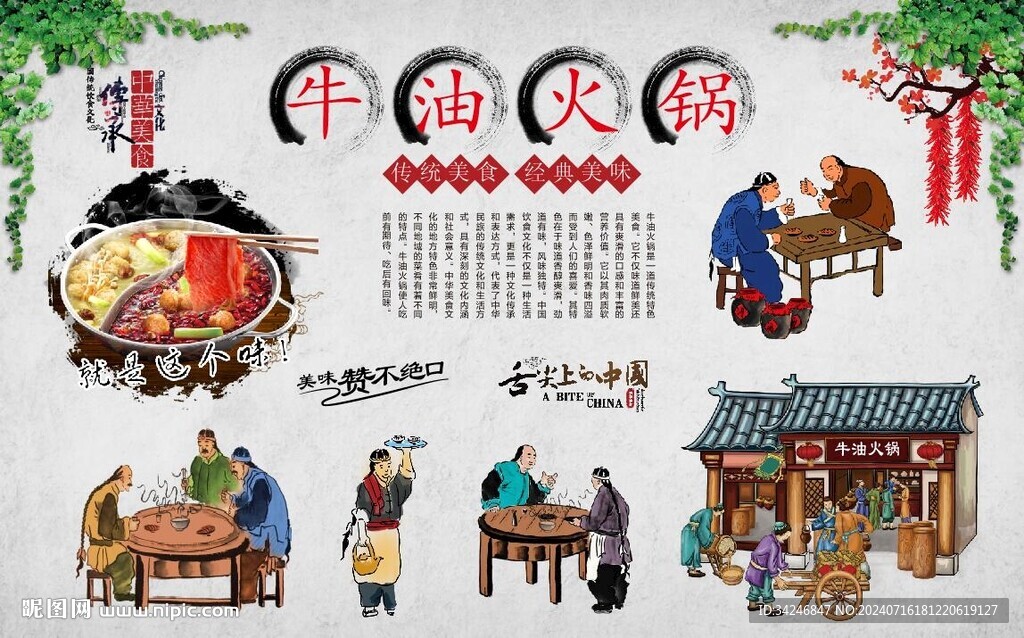 牛油火锅
传统美食 经典美味
中华美食
传承
文化
国传统饮食文化
牛油火锅是一道传统特色
美食。它不仅味道鲜美还
具有爽滑的口感和丰富的
营养价值。它以其肉质软
嫩、色泽鲜明和香味四溢
而受到人们的喜爱。其特
色在于味道香醇爽滑，劲
道有味，风味独特。中国
饮食文化不仅是一种生活
需求，更是一种文化传承
和表达方式，代表了中华
民族的传统文化和生活方
式，具有深刻的文化内涵
和社会意义。中华美食文
化的地方特色非常鲜明，
不同地域的菜肴有着不同
的特点，牛油火锅使人吃
前有期待，吃后有回味。
就是这个味！
美味赞不绝口
舌尖上的中国
A BITE OF CHINA
牛油火锅
昵图网 www.nipic.com
ID:34246847 NO:20240716181220619127